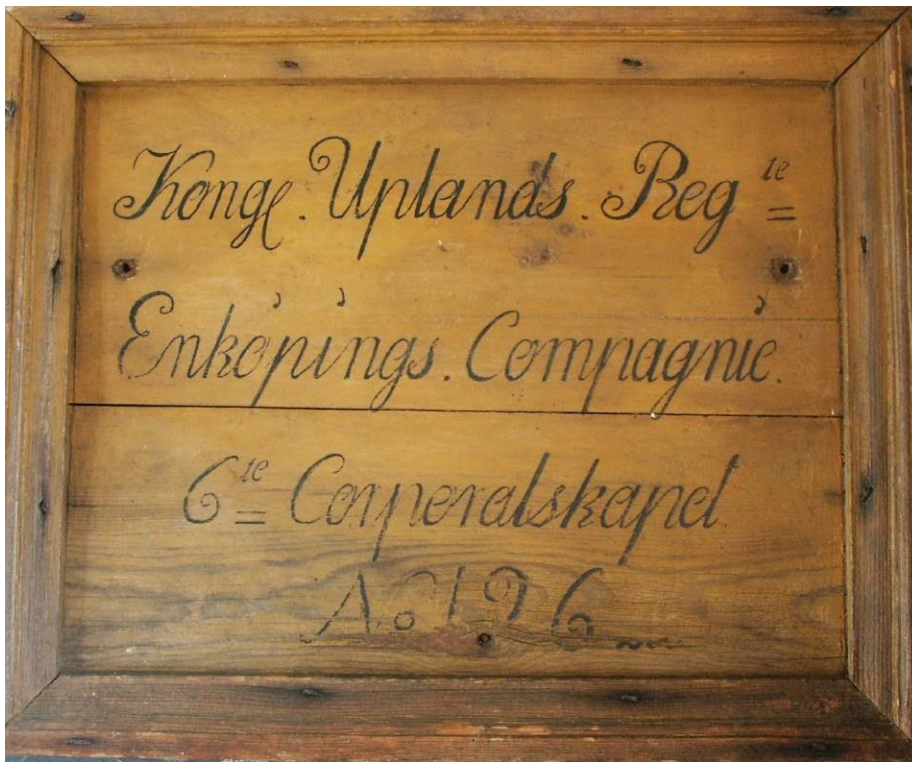 Kongl. Uplands. Reg te
Enköpings. Compagnie.
6 te Corporalskapet.
No 126